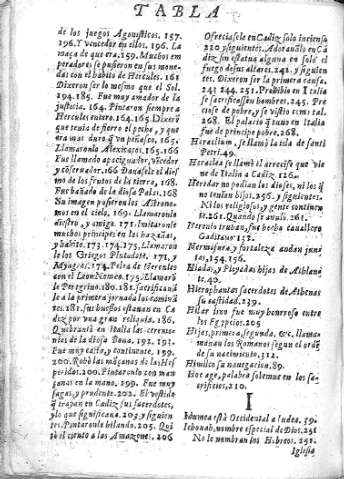 TABLA
de los juegos Agonisticos. 157.
196. Y vencedor en ellos. 196. La
maça de que era. 159. Muchos em
peradores se pusieron en sus mone-
das con el habito de Hercules. 161
Dixeron ser lo mesmo que el Sol.
294.185. Fue muy amador de la
justicia. 164. Pintaron siempre a
Hercules entero. 164.165. Dixerō
que tenia de fierro el pecho, y que
era mas duro q̄ vn peñasco, 165.
Llamaronlo Alexicacos. 165.166
Fue llamado apaciguador, vēcedor
y cōseruador. 166. Dauasele el diez
mo de los frutos de la tierra, 168.
Fue bañado de la diosa Palas. 168
Su imagen pusieron los Astrono-
mos en el cielo, 169. Llamaronlo
diestro, y amigo. 171. Imitaronlo
muchos principes en las hazañas,
y habito. 173.174.175. Llamarō
lo los Griegos 171. y
176. Pelea de Hercules
con el Leon Nemeo. 175. Llamarō
lo Peregrino. 180.181. Sacrificauā
le a la primera jornada los camină
tes. 181. sus huessos estauan en Ca
diz por vna gran reliquia. 186.
Quebrantò en Italia las ceremo-
nias de la diosa Bona. 192. 193.
Fue muy casto, y continente. 199.
200. Robò las māçanas de las Hes
peridas. 200. Pintaronlo con man
çanas en la mano. 199. Fue muy
sagaz, y prudente. 202. El vestido
q̄ trapan en Cadiz sus sacerdotes,
y lo que significaua. 203. y siguien
tes. Pintaronle hilando. 205. Qui
tò el cinto a las Amazonas. 206
Ofreciasele en Cadiz solo incienso
220 y siguientes. Adorauālo en Ca
diz sin estatua alguna en solo el
fuego de sus altares. 242. y siguien
tes. Dixeron ser la primera causa.
241 244. 251. Prohibio en Italia
se sacrificassen hombres. 245. Pre
cose de pobre, y se vistio como tal.
268. El palacio q̄ tuuo en Italia
fue de principe pobre. 268.
Heraclium, se llamò la isla de santi
Petri. 49.
Heraclea se llamò el arrecife que vie
ne de Italia a Cadiz. 126.
Heredar no podian los dioses, ni los q̄
no tenian hijos. 256. y siguientes.
Ni los religiosos, y gente continen
te. 261. Quando se anulò. 261.
Herenio trubao, fue hecho cauallero
Gaditano. 132.
Hermosura, y fortaleze andan jun
tas, 154. 156.
Hiadas, y Pleyadas hijas de Athlan
te. 40.
Hierophantas sacerdotes de Athenas
su castidad. 239.
Hilar lino fue muy honroso entre
los Egypcios. 205
Hijos, primera, segunda, &c. llama-
uan los Romanos segun el ordē
de su nacimiento, 312.
Himilco su nauegacion, 89.
Hoc age, palabra solemne en los sa-
crificios, 210.
I
Idumea està Occidental a Iudea. 59.
Iehouah, nombre especial de Dios. 251
No le nombran los Hebreos. 251.
Iglesia